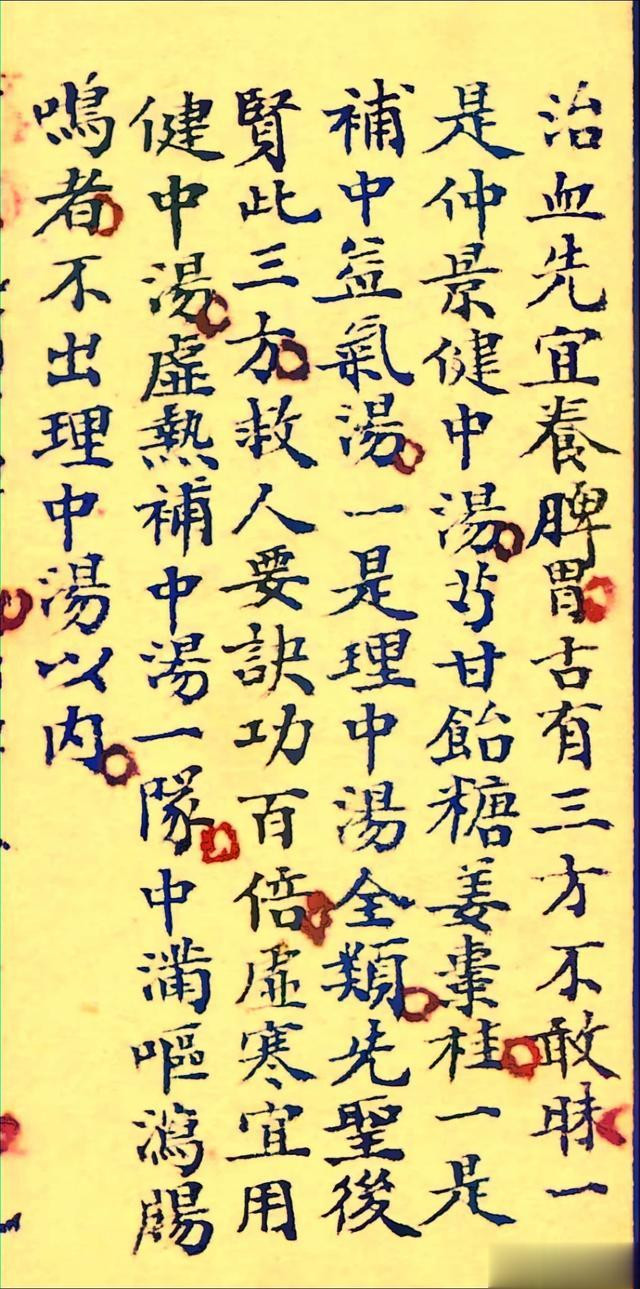 治血先宜養脾胃古有三方不敢昧一
是仲景健中湯芍甘飴糖姜棗桂一是
補中益氣湯一是理中湯全類先聖後
賢此三方救人要訣功百倍虛寒宜用
健中湯虛熱補中湯一隊中滿嘔瀉腸
鳴者不出理中湯以内